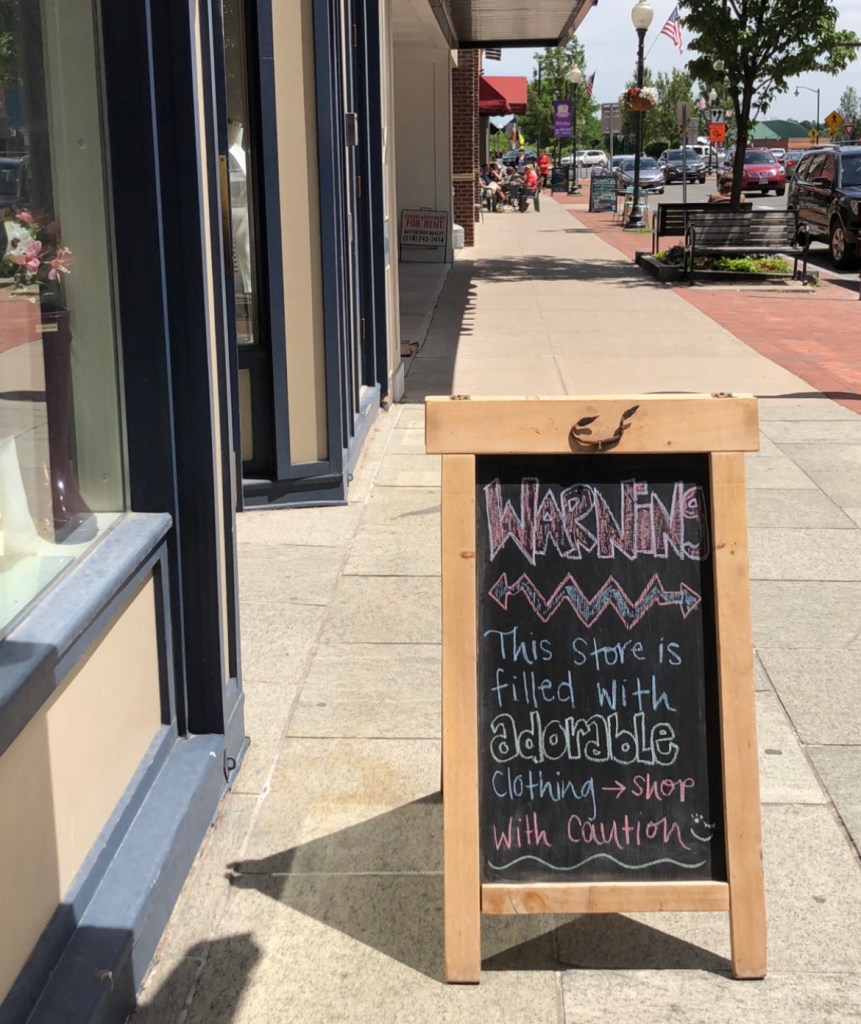 WARNING
This store is
filled with
adorable
Clothing → shop
with caution
FOR RENT